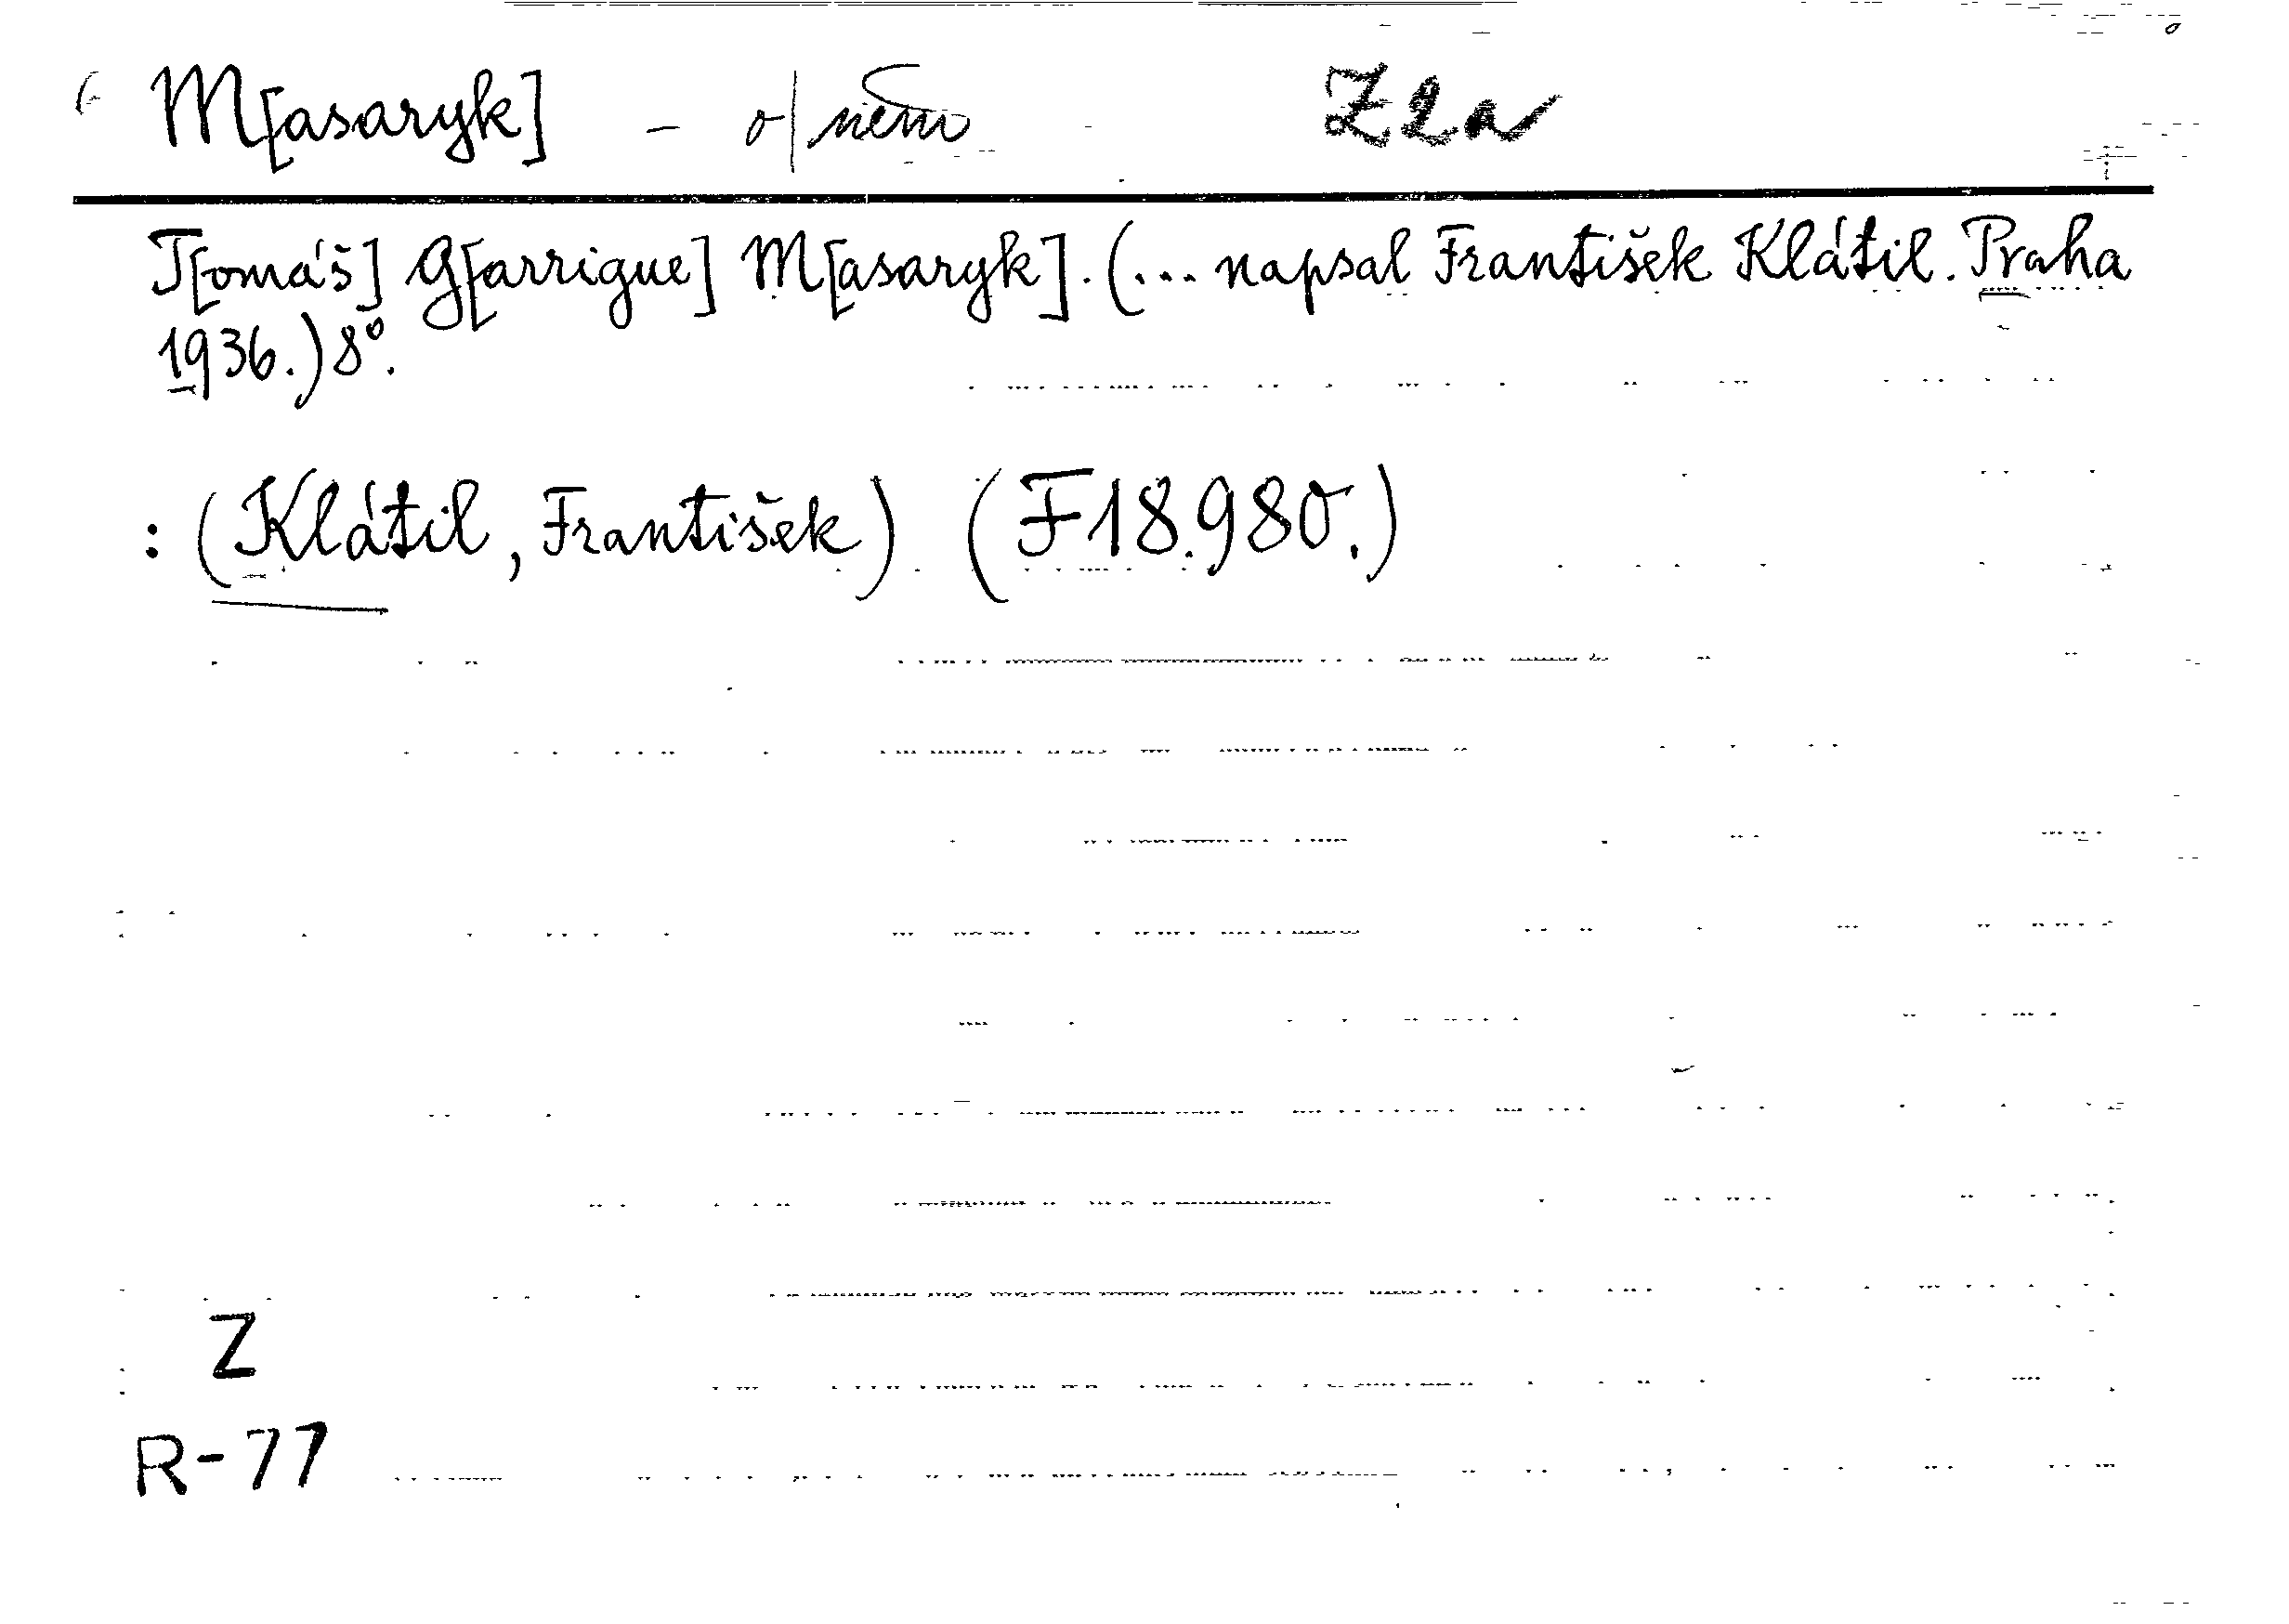 M[asaryk] – o/ něm Z2a
T[omáš] G[arrigue] M[asaryk]. (... napsal František Klátil. Praha
1936.) 8°.
: (Klátil, František) (F18.980.)
Z
R-77